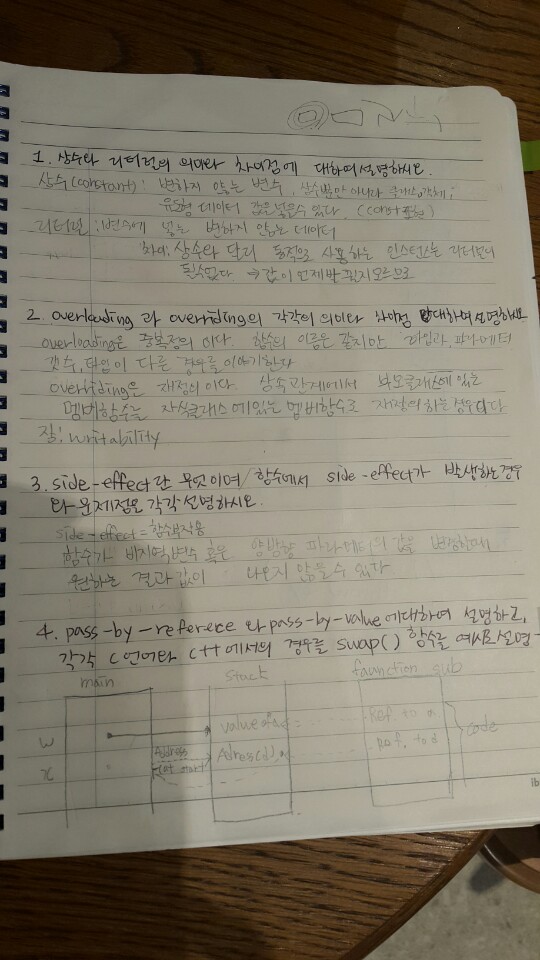 1. 상수와 리터럴의 의미와 차이점에 대하여 설명하시오.
상수(constant): 변하지 않는 변수, 상수뿐만 아니라 클래스, 객체,
유동형 데이터 값을 넣을수 있다. (const 포함)
리터럴 : 변수에 넣는 변하지 않는 데이터
차이: 상수와 달리 동적으로 사용하는 인스턴스는 리터럴이
될수없다 → 값이 언제 바뀔지 모르므로
2. overloading 과 overriding의 각각의 의미와 차이점 대하여 설명하시오
overloading은 중복정의 이다. 함수의 이름은 같지만 파라메터
갯수, 타입이 다른 경우를 이야기한다
overriding은 재정의 이다 상속관계에서 부모클래스에 있는
멤버함수를 자식클래스에있는 멤버함수로 재정의하는 경우다
장: writability
3. side-effect란 무엇이며 함수에서 side-effect가 발생하는 경우
와 문제점을 각각 설명하시오.
side-effect = 함수부작용
함수가 비지역변수 혹은 양방향 파라메터의 값을 변경할때
원하는 결과값이 나오지 않을 수 있다
4. pass-by-referece 와 pass-by-value에 대하여 설명하고,
각각 C언어와 C++에서의 경우를 swap() 함수를 예시로 설명
main stack faunction sub
w value of a Ref to a
code
x Address Adress(d) Ref. to d
(at start)
16